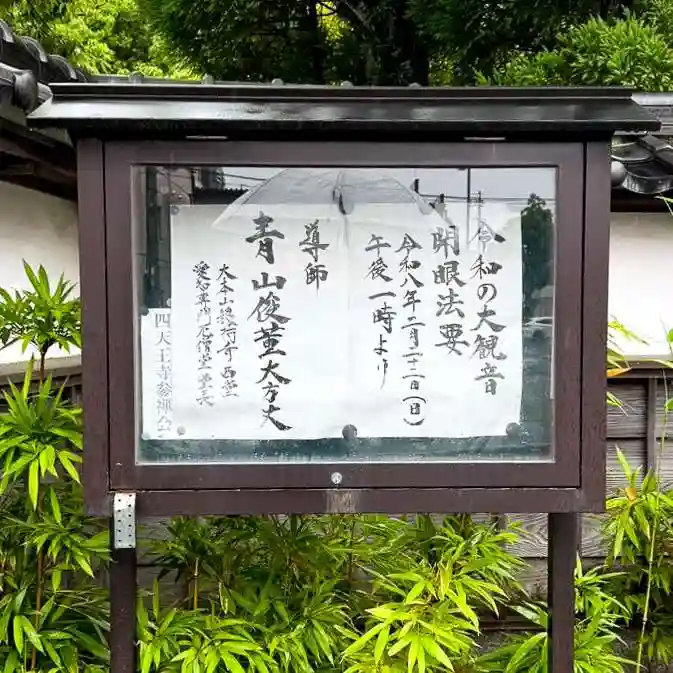 令和の大観音
開眼法要
令和八年二月二十二日(日)
午後一時より
導師
青山俊董大方丈
大本山總持寺西堂
愛知専門尼僧堂堂長
四天王寺参禅会